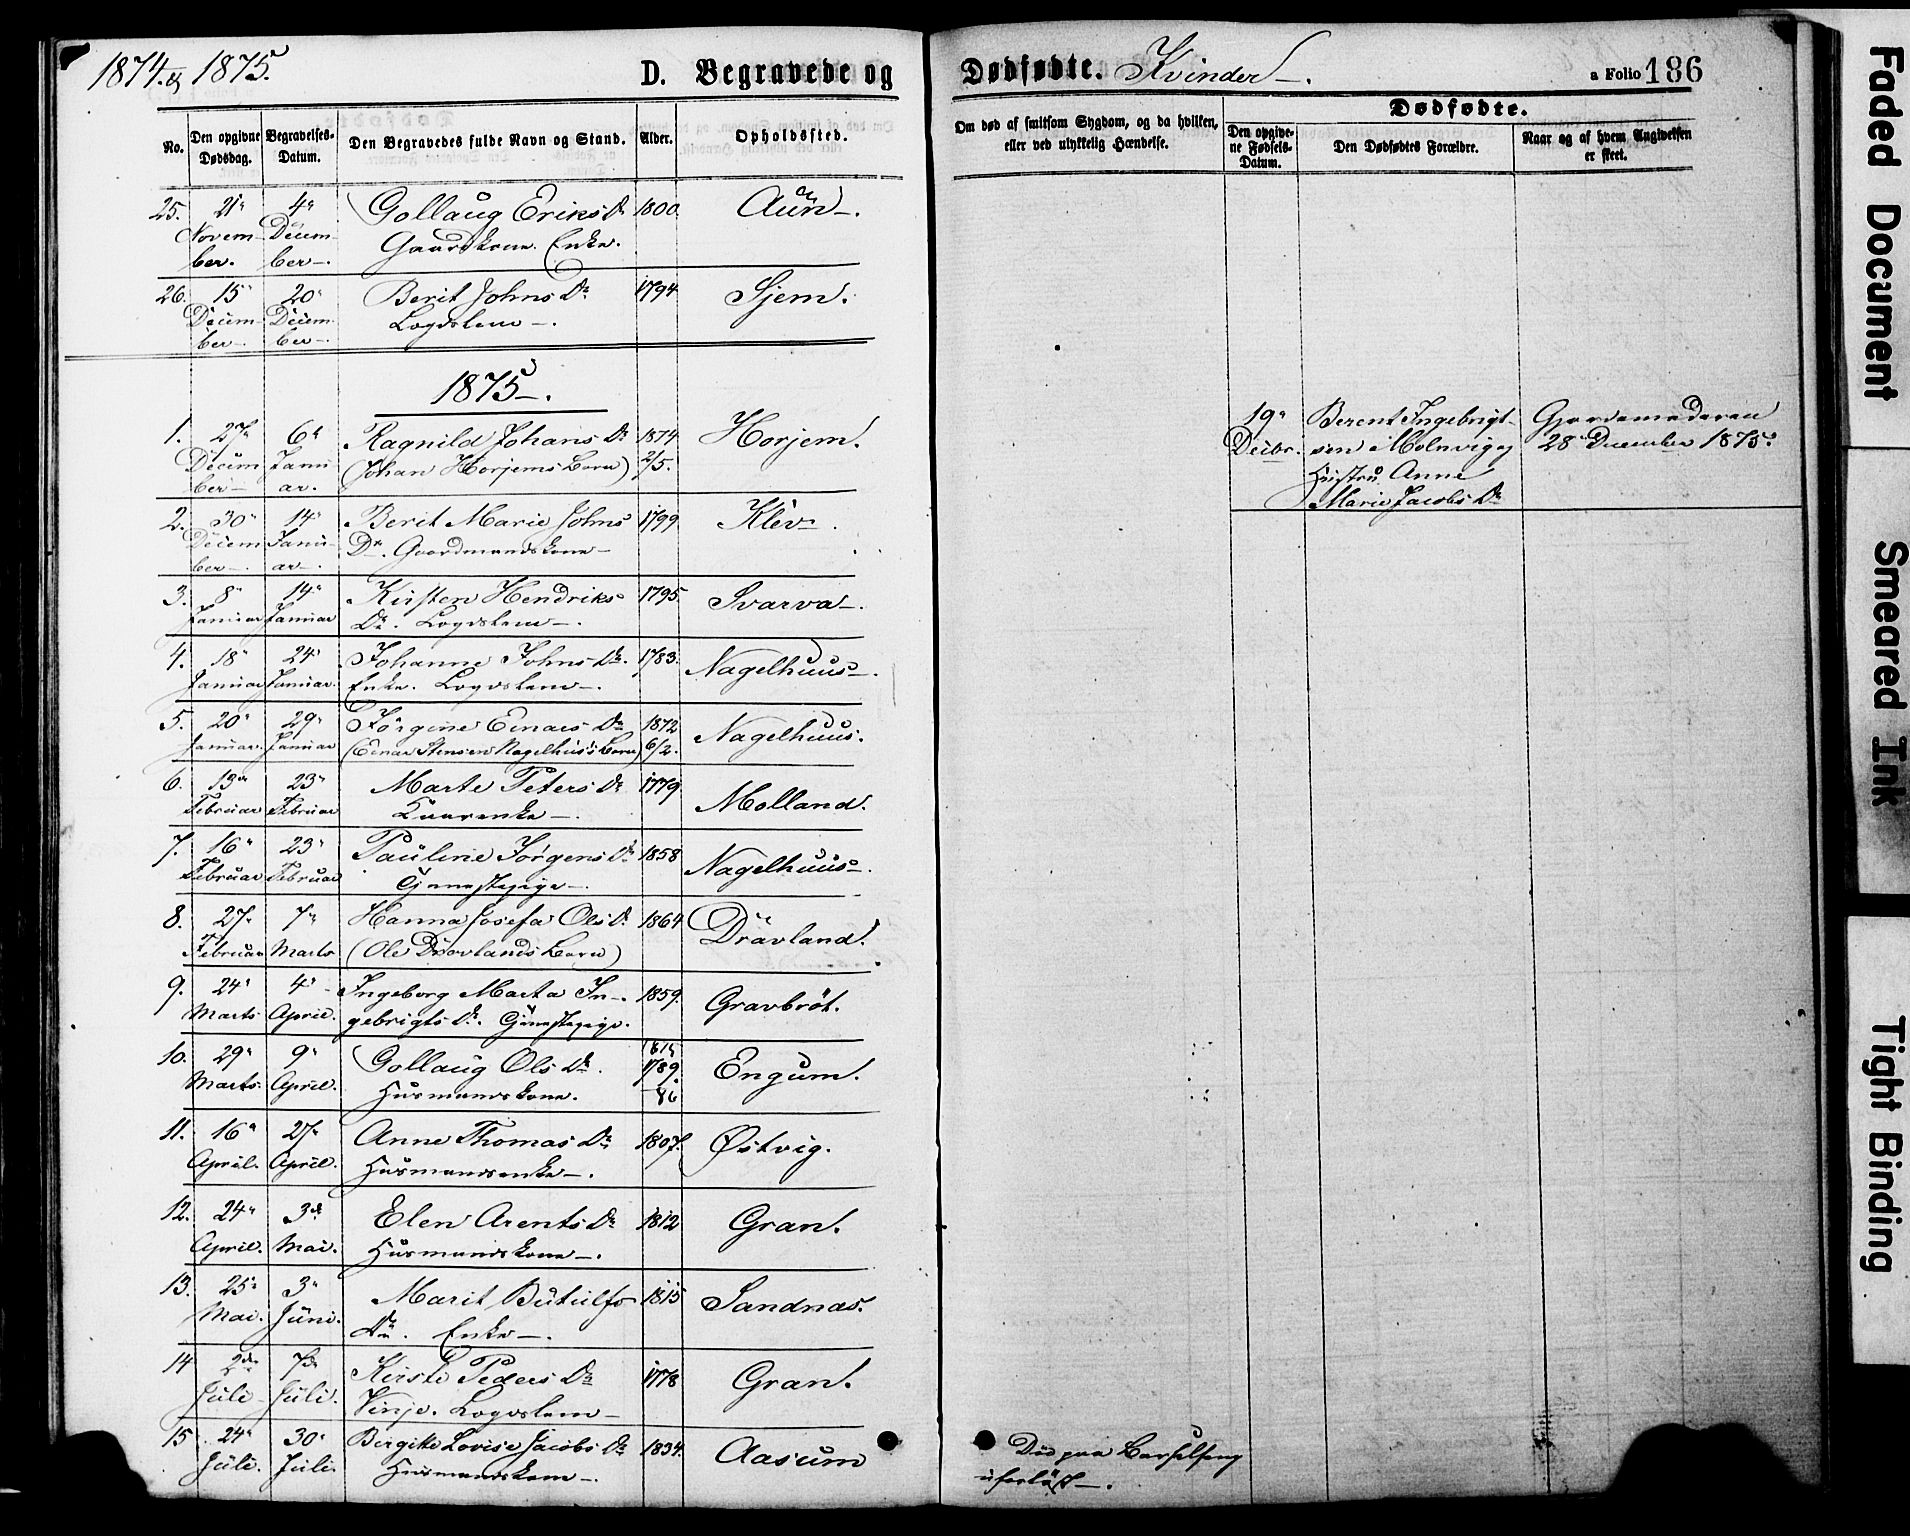 1874 & 1875.
D. Begravede og Dødfødte. Kvinder.
a Folio 186
No.
Den opgivne Dødsdag.
Begravelses-Datum.
Den Begravedes fulde Navn og Stand.
Alder.
Opholdssted.
Om død af smitsom Sygdom, og da hvilken, eller ved ulykkelig Hændelse.
Dødfødte.
Den opgivne Fødsels-Datum.
Den Dødfødtes Forældre.
Naar og af hvem Angivelsen er skeet.
25. 21" November. 4" December. Gollaug Eriks Dr 1800. Aun.
Gaardkone. Enke.
26. 15" December. 20" December. Berit Johns Dr 1794 Sjem.
Logdslem.
1875.
1. 27" December 6" Januar. Ragnild Johans Dr 1874 2/5. Horjem.
(Johan Horjems Barn)
2. 30" December. 14" Januar. Berit Marie Johns 1799 Klev.
Dr. Gaardmandskone
3. 8" Januar 14" Januar Kirsten Hendriks 1795. Svarva.
Dr. Logdslem.
4. 18" Januar 24" Januar. Johanne Johns Dr. 1783. Nagelhuus.
Enke. Logdslem.
5. 20" Januar. 29" Januar Jörgine Einars Dr 1872 6/2. Nagelhuus.
(Einar Stensen Nagelhus's Barn)
6. 13" Februar 23" Februar Marte Peters Dr 1779 Molland.
Kaarenke.
7. 16" Februar 23" Februar Pauline Jörgens Dr 1858 Nagelhuus.
Tjenestepige
8. 27" Februar 7" Marts Hanna Josefa Ols Dr 1864 Drävland.
(Ole Drävlands Barn)
9. 24" Marts 4" April. Ingeborg Marta In- 1859. Gravbröt.
gebrigts Dr. Tjenestepige.
10. 29" Marts 9" April. Gollaug Ols Dr. 1875 1789. 86 Engum.
Husmandskone.
11. 16" April. 27" April. Anne Thomas Dr 1807. Østvig.
Husmandsenke.
12. 24" April. 3de Mai. Elen Arents Dr 1812 Gran.
Husmandskone.
13. 25" Mai. 3" Juni. Marit Butulfs 1815 Sandnas.
Dr. Enke.
14 2den Juli 7de Juli. Kirsti Peders Dr 1778 Gran.
Vinje. Logdslem
15 24" Juli. 30" Juli. Bergitte Lovise Jacobs Dr 1834. Aasum
Husmandskone.
Död paa Barselseng
uforlöst.
19" Decbr. Berent Ingebrigt-
sen Molnvig og
Hustru Anne
Marie Jacobs Dr
Gjordemoderen
28 December 1875.
Faded Document
Smeared Ink
Tight Binding